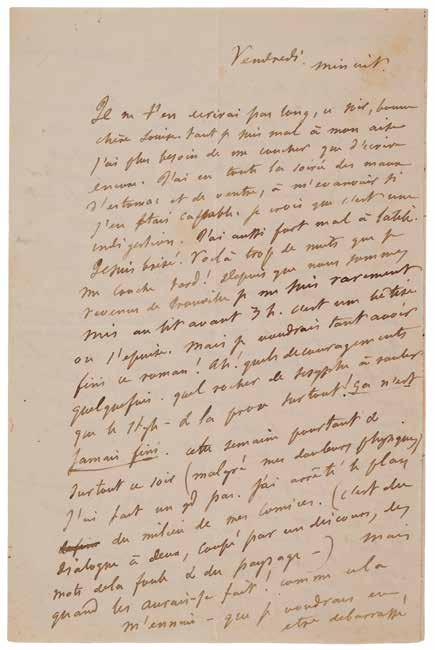 Vendredi. minuit.
Je ne t'en écrirai pas long, ce soir, bonne
chère Louise tant je suis mal à mon aise
J'ai plus besoin de me coucher que d'écrire
encore. J'ai eu toute la soirée des maux
d'estomac et de ventre, à m'évanouir si
j'en étais capable. je crois que c'est une
indigestion. J'ai aussi fort mal à la tête.
Je suis brisé. Voilà trop de nuits que je
me couche tard! Depuis que nous sommes
revenus de Trouville je me suis rarement
mis au lit avant 3 h. c'est une bêtise
on s'épuise. mais je voudrais tant avoir
fini ce roman! Ah! quels découragements
quelquefois. quel rocher de Sisyphe à rouler
que le style - & la prose surtout! Ça n'est
jamais fini. cette semaine pourtant &
surtout ce soir (malgré mes douleurs physiques)
J'ai fait un gd pas. J'ai arrêté le plan
du milieu de mes comices. (c'est du
dialogue à deux, coupé par un discours, des
mots de la foule & du paysage -) mais
quand les aurai-je fait! comme cela
m'ennuie - que je voudrais en
être débarrassé